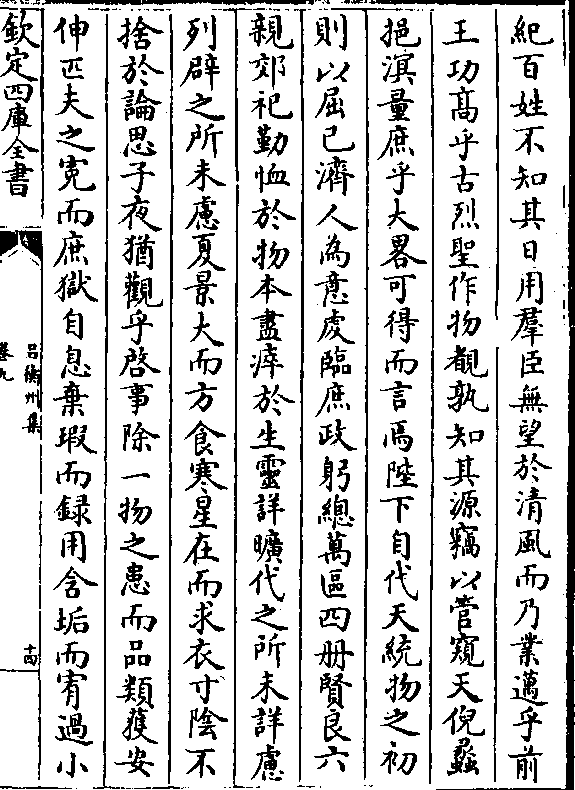 紀百姓不知其日用羣臣無望於清風而乃業邁乎前
王功髙乎古烈聖作物覩孰知其源竊以管窺天倪蠡
挹溟量庶乎大畧可得而言焉陛下自代天統物之初
則以屈己濟人為意處臨庶政躬總萬區四册賢良六
親郊祀勤恤於物本盡瘁於生靈詳曠代之所未詳慮
列辟之所未慮夏景大而方食寒星在而求衣寸陰不
捨於論思子夜猶觀乎啓事除一物之患而品類獲安
伸匹夫之寃而庶獄自息棄瑕而録用含垢而宥過小
欽定四庫全書
吕衡州集
卷九
十四